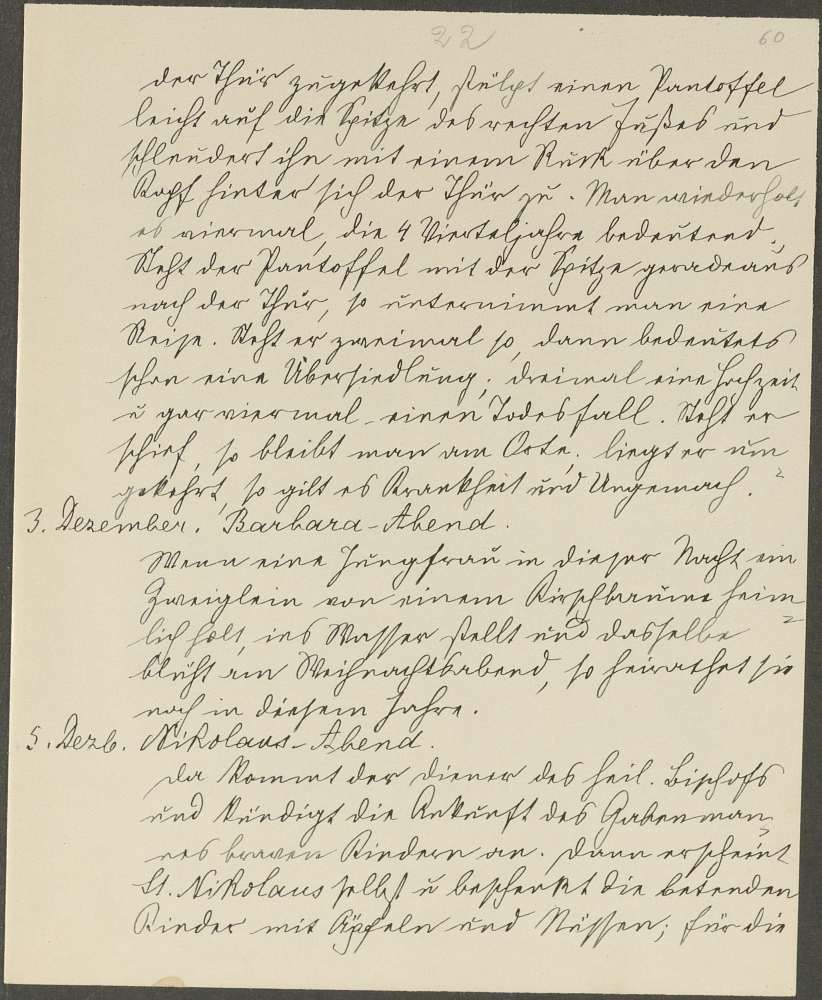 22
60
der Thür zugekehrt, stülpt einen Pantoffel
leicht auf die Spitze des rechten Fußes und
schleudert ihn mit einem Ruck über den
Kopf hinter sich der Thür zu. Man wiederholt
es viermal, die 4 Vierteljahre bedeutend.
Steht der Pantoffel mit der Spitze geradeaus
nach der Thür, so unternimmt man eine
Reise. Steht er zweimal so, dann bedeutets
schon eine Übersiedlung; dreimal eine Hochzeit
u gar viermal einen Todesfall. Steht er
schief, so bleibt man am Orte. liegt er um
gekehrt, so gilt es Krankheit und Ungemach.
3. Dezember. Barbara-Abend.
Wenn eine Jungfrau in dieser Nacht ein
Zweiglein von einem Kirschbaume heim-
lich holt, ins Wasser stellt und dasselbe
blüht am Weihnachtsabend, so heirathet sie
noch in diesem Jahre.
5. Dezb. Nikolaus-Abend.
Da kommt der Diener des heil. Bischofs
und kündigt die Ankunft des Gabenman-
nes braven Kindern an. Dann erscheint
St. Nikolaus selbst u beschenkt die betenden
Kinder mit Äpfeln und Nüssen; für die